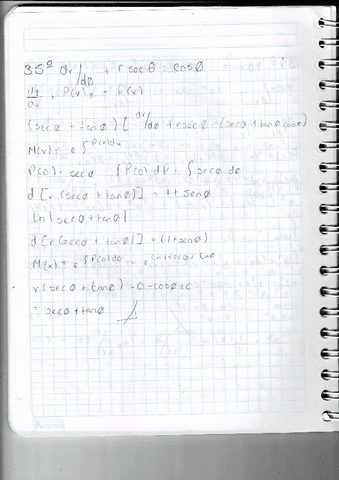 35º dr/dθ + r sec θ = cos θ
dy/dx + P(x)y = f(x)
(sec θ + tan θ) [ dr/dθ + r sec θ = (sec θ + tan θ cos θ)
M(x) = e∫P(x)dx
P(θ) = sec θ ∫P(θ) dθ = ∫sec θ dθ
d [r (sec θ + tan θ)] = 1 + sen θ
Ln |sec θ + tan θ|
d [r (sec θ + tan θ)] = (1 + sen θ)
M(x) = e∫P(θ)dθ = e
r (sec θ + tan θ) = θ - cos θ + c
= sec θ + tan θ